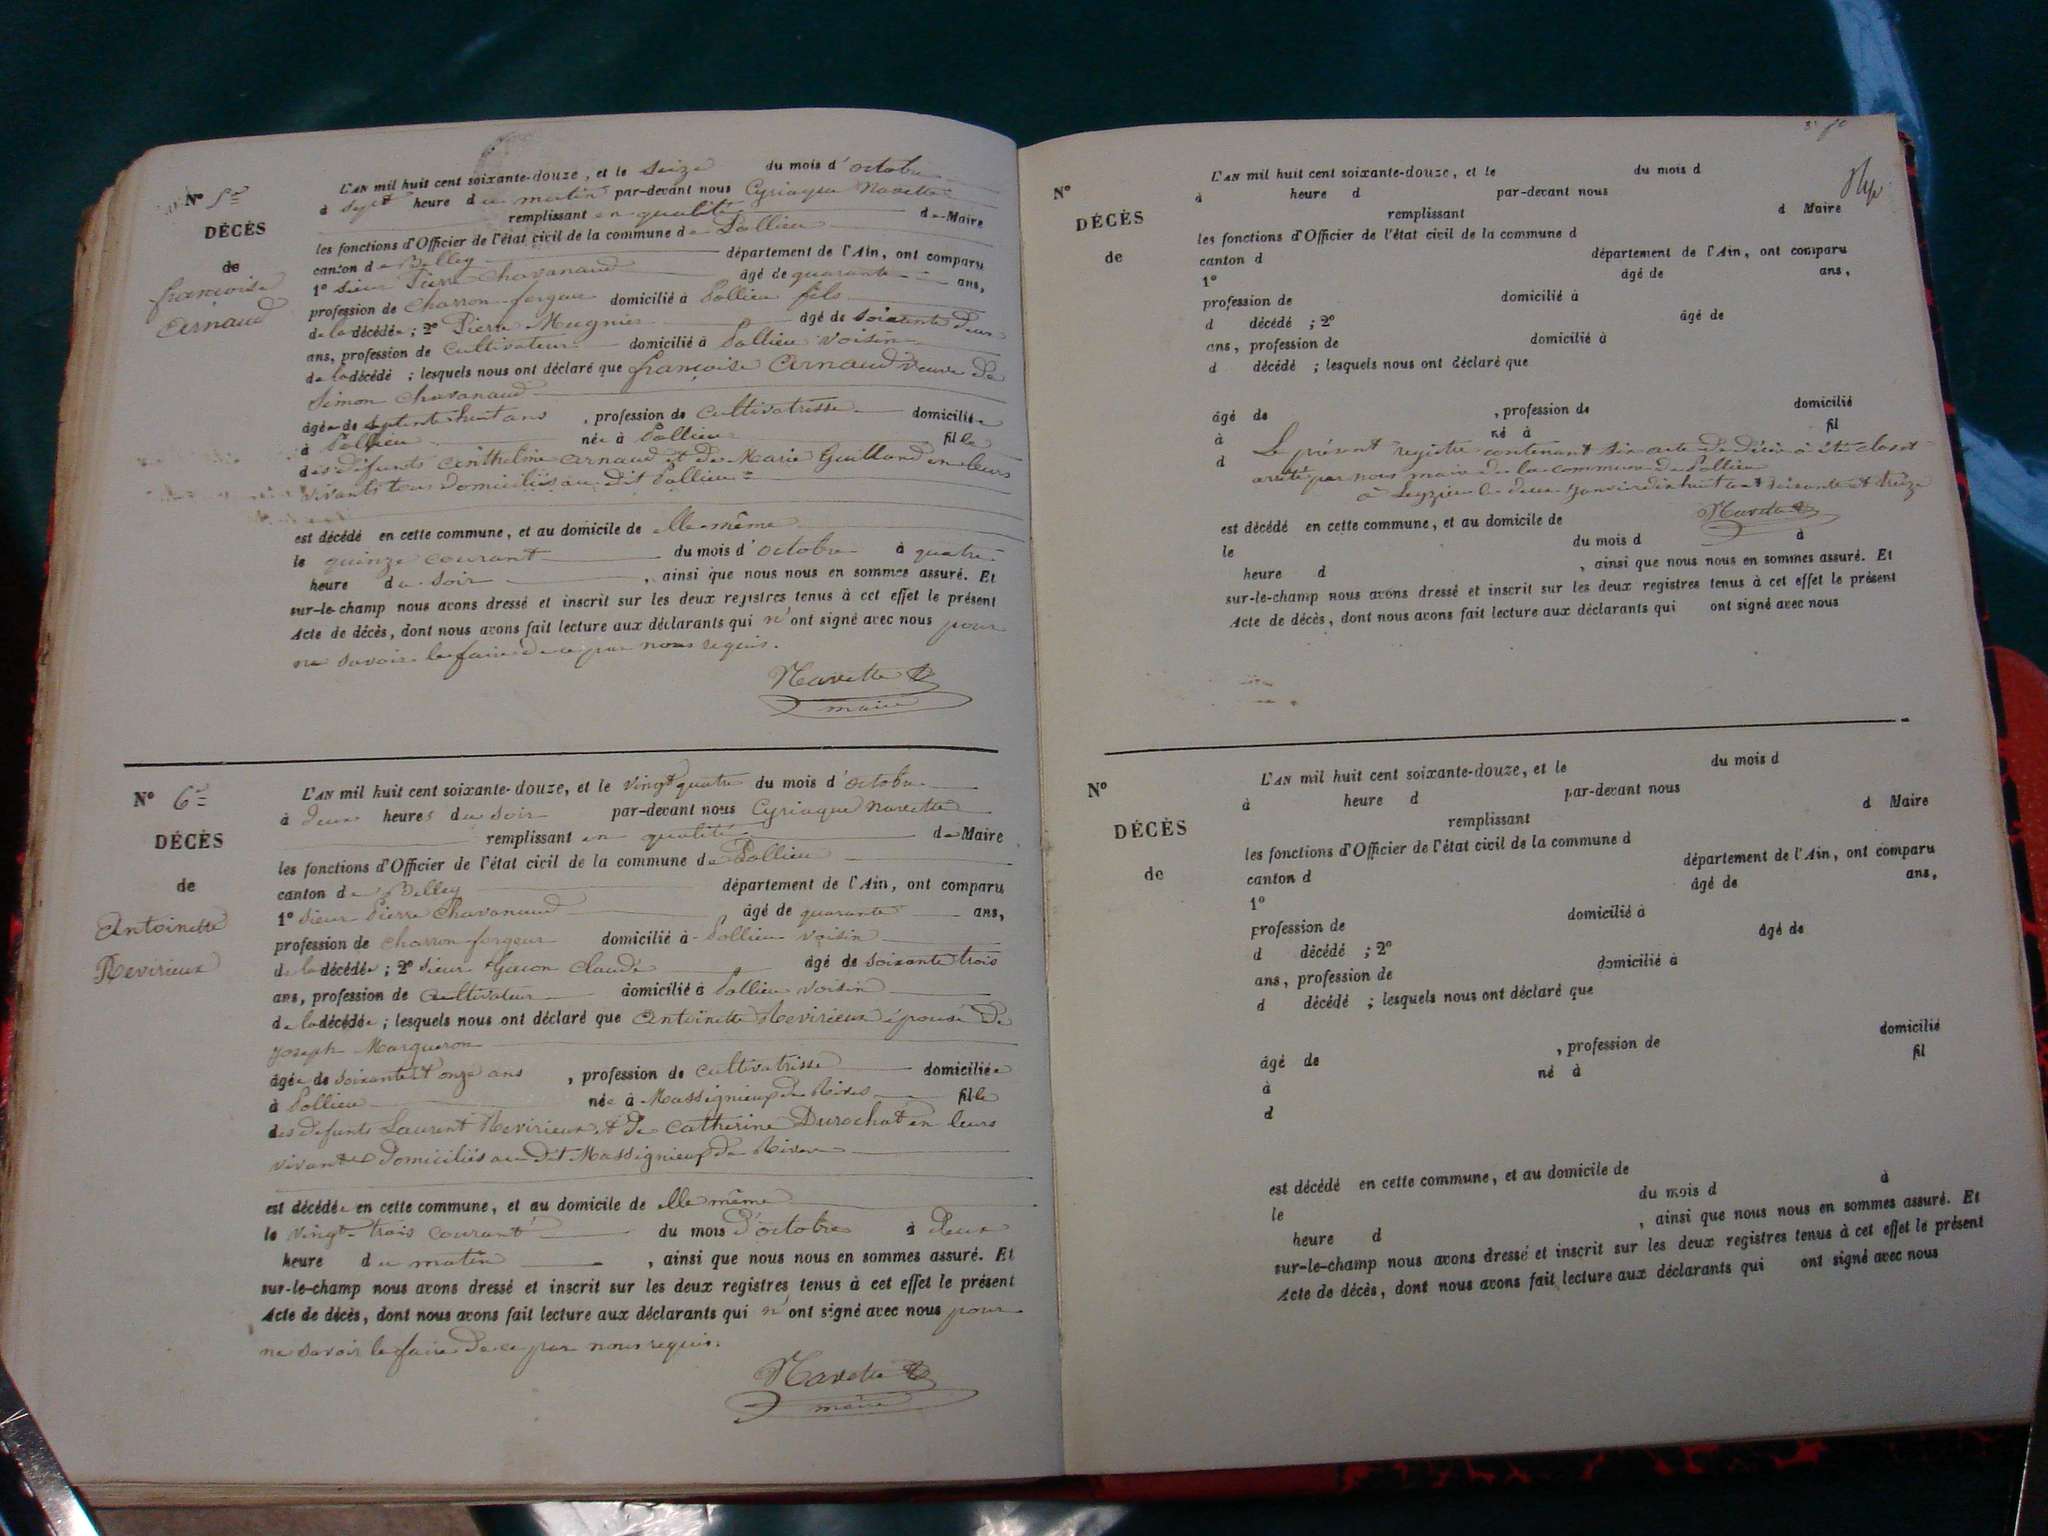 N° 5e
DÉCÈS
de
françoise
Arnaud
L'AN mil huit cent soixante-douze, et le seize du mois d'octobre
à sept heure du matin par-devant nous Cyriaque Navette
remplissant en qualité de Maire
les fonctions d'Officier de l'état civil de la commune de Pollieu
canton de Belley département de l'Ain, ont comparu
1° sieur Pierre Chavanaud âgé de quarante ans,
profession de charron forgeur domicilié à Pollieu fils
de la décédée ; 2° Pierre Mugnier âgé de soixante deux
ans, profession de cultivateur domicilié à Pollieu voisin
de la décédé ; lesquels nous ont déclaré que françoise Arnaud veuve de
Simon Chavanaud
âgée de septente huit ans , profession de cultivatrisse domiciliée
à Pollieu née à Pollieu fille
des défunts Anthelme Arnaud et de Marie Guilland en leurs
vivants tous domiciliés au dit Pollieu
est décédé en cette commune, et au domicile de elle même
le quinze courant du mois d'octobre à quatre
heure du soir , ainsi que nous nous en sommes assuré. Et
sur-le-champ nous avons dressé et inscrit sur les deux registres tenus à cet effet le présent
Acte de décès, dont nous avons fait lecture aux déclarants qui n'ont signé avec nous pour
ne savoir le faire de ce par nous requis.
Navette
maire
N° 6e
DÉCÈS
de
Antoinette
Revirieux
L'AN mil huit cent soixante-douze, et le vingt quatre du mois d'octobre
à deux heures du soir par-devant nous Cyriaque Navette
remplissant en qualité de Maire
les fonctions d'Officier de l'état civil de la commune de Pollieu
canton de Belley département de l'Ain, ont comparu
1° sieur Pierre Chavanaud âgé de quarante ans,
profession de charron forgeur domicilié à Pollieu voisin
de la décédée ; 2° sieur Claude âgé de soixante trois
ans, profession de cultivateur domicilié à Pollieu voisin
de la décédée ; lesquels nous ont déclaré que Antoinette Revirieux épouse de
joseph Marqueron
âgée de soixante et onze ans , profession de cultivatrisse domiciliée
à Pollieu née à Massignieux de Rives fille
des défunts Laurent Revirieux et de Catherine Durochat en leurs
vivants domiciliés au dit Massignieux de Rives
est décédée en cette commune, et au domicile de elle même
le vingt-trois courant du mois d'octobre à deux
heure du matin , ainsi que nous nous en sommes assuré. Et
sur-le-champ nous avons dressé et inscrit sur les deux registres tenus à cet effet le présent
Acte de décès, dont nous avons fait lecture aux déclarants qui n'ont signé avec nous pour
ne savoir le faire de ce par nous requis.
Navette
maire
N°
DÉCÈS
de
L'AN mil huit cent soixante-douze, et le du mois d
à heure d par-devant nous
remplissant d Maire
les fonctions d'Officier de l'état civil de la commune d
canton d département de l'Ain, ont comparu
1° âgé de ans,
profession de domicilié à
d décédé ; 2° âgé de
ans, profession de domicilié à
d décédé ; lesquels nous ont déclaré que
âgé de , profession de domicilié
à né à fil
d
Le présent registre contenant six acte de décès à été clos et
arrêté par nous maire de la commune de Pollieu
à le deux janvier dix huit cent soixante et treize
Navette
est décédé en cette commune, et au domicile de
le du mois d à
heure d , ainsi que nous nous en sommes assuré. Et
sur-le-champ nous avons dressé et inscrit sur les deux registres tenus à cet effet le présent
Acte de décès, dont nous avons fait lecture aux déclarants qui ont signé avec nous
N°
DÉCÈS
de
L'AN mil huit cent soixante-douze, et le du mois d
à heure d par-devant nous
remplissant d Maire
les fonctions d'Officier de l'état civil de la commune d
canton d département de l'Ain, ont comparu
1° âgé de ans,
profession de domicilié à
d décédé ; 2° âgé de
ans, profession de domicilié à
d décédé ; lesquels nous ont déclaré que
âgé de , profession de domicilié
à né à fil
d
est décédé en cette commune, et au domicile de
le du mois d à
heure d , ainsi que nous nous en sommes assuré. Et
sur-le-champ nous avons dressé et inscrit sur les deux registres tenus à cet effet le présent
Acte de décès, dont nous avons fait lecture aux déclarants qui ont signé avec nous